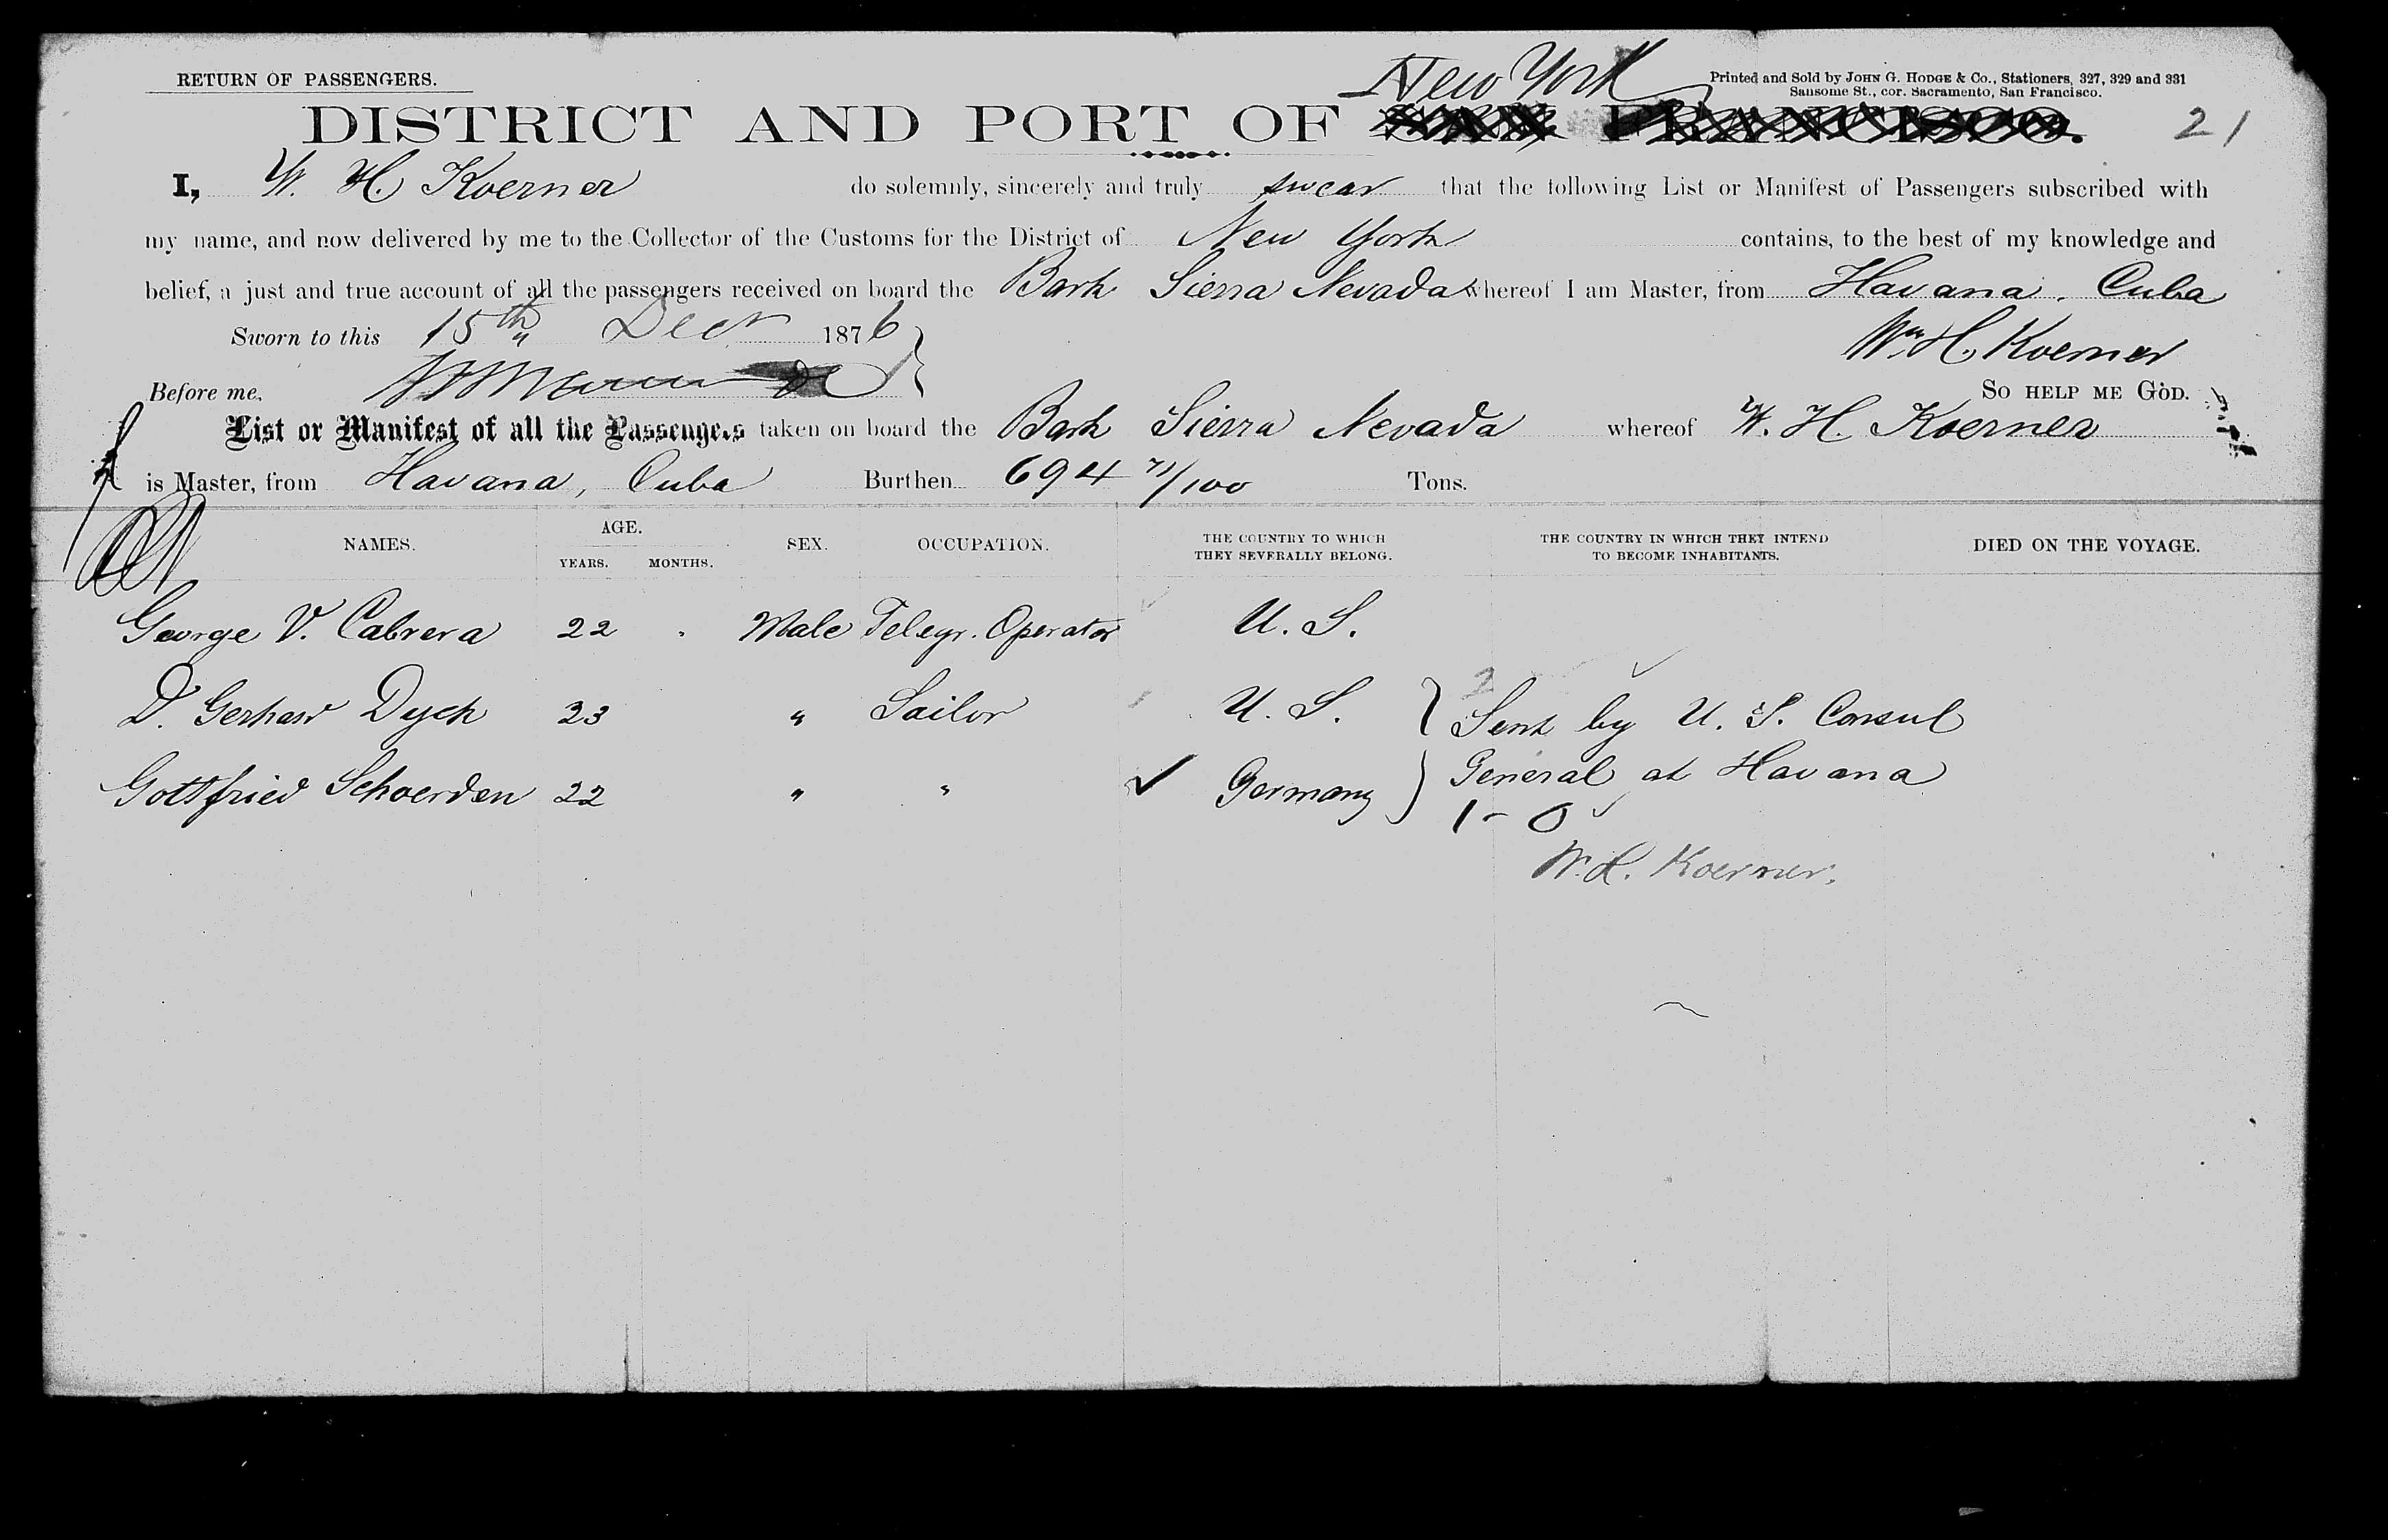 RETURN OF PASSENGERS.
New York
Printed and Sold by JOHN G. HODGE & Co., Stationers, 327, 329 and 331
Sansome St., cor. Sacramento, San Francisco.
DISTRICT AND PORT OF SAN FRANCISCO. 21
I, W. H. Koerner do solemnly, sincerely and truly swear that the following List or Manifest of Passengers subscribed with
my name, and now delivered by me to the Collector of the Customs for the District of New York contains, to the best of my knowledge and
belief, a just and true account of all the passengers received on board the Bark Sierra Nevada whereof I am Master, from Havana, Cuba
Sworn to this 15th Decr 1876 Wm H. Koerner
Before me, SO HELP ME GOD.
List or Manifest of all the Passengers taken on board the Bark Sierra Nevada whereof W. H. Koerner
is Master, from Havana, Cuba Burthen 694 71/100 Tons.
NAMES. AGE. YEARS. MONTHS. SEX. OCCUPATION. THE COUNTRY TO WHICH THEY SEVERALLY BELONG. THE COUNTRY IN WHICH THEY INTEND TO BECOME INHABITANTS. DIED ON THE VOYAGE.
George V. Cabrera 22 Male Telegr. Operator U. S.
D. Gerhaw Dyck 23 " Sailor U. S. } 2 Sent by U. S. Consul
Gottfried Schoerden 22 " " ✓ Germany } General at Havana
1 - 0
W. H. Koerner.